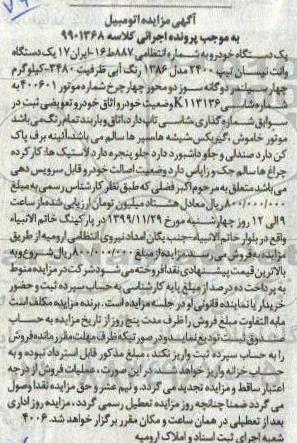 آگهی مزایده اتومبیل
به موجب پرونده اجرائی کلاسه ۹۹۰۱۳۶۸
یک دستگاه خودرو به شماره انتظامی ۸۸۷ط۱۶-ایران۱۷ یک دستگاه
وانت نیسان تیپ ۲۴۰۰ مدل ۱۳۸۶ رنگ آبی ظرفیت ۳۴۸۰-کیلوگرم
چهار سیلندر دوگانه سوز دو محور چهار چرخ شماره موتور ۴۰۰۶۰۱ به
شماره شاسی K۱۱۳۱۳۶ وضعیت خودرو اتاق خودرو تعویضی ثبت در
سوابق شماره گذاری شاسی تاب دارد اتاق و باربند تمام رنگ می باشد
موتور خاموش، گیربکس، شیشه هاسپر ها سالم می باشد، آئینه برف پاک
کن دارد صندلی و جلو داشبورد دارد جلو پنجره دارد لاستیک ها: کارکرده
چراغ ها سالم جک و زاپاس دارد وضعیت اصالت خودرو قابل سرویس دهی
می باشد متعلق به مرحوم اکبر فضلی که طبق نظر کارشناس رسمی به مبلغ
۸۰۰/۰۰۰/۰۰۰ ریال معادل هشتاد میلیون تومان ارزیابی شده از ساعت
۹ الی ۱۲ روز چهارشنبه مورخ ۱۳۹۹/۱۱/۲۹ در پارکینگ خاتم الانبیاء
واقع در بلوار خاتم الانبیاء-جنب یگان امداد نیروی انتظامی ارومیه از طریق
مزایده به فروش می رسد مزایده از مبلغ ۸۰۰/۰۰۰/۰۰۰ ریال شروع و به
بالاترین قیمت پیشنهادی نقدا فروخته می شود شرکت در مزایده منوط
به پرداخت ده درصد از مبلغ پایه کارشناسی به حساب سپرده ثبت و حضور
خریدار یا نماینده قانونی او در جلسه مزایده است. برنده مزایده مکلف است
مابه التفاوت مبلغ فروش را ظرف مدت پنج روز از تاریخ مزایده به حساب
صندوق ثبت تودیع نماید و در صورتیکه ظرف مهلت مقرر مانده فروش
را به حساب سپرده ثبت واریز نکند، مبلغ مذکور قابل استرداد نبوده و به
حساب خزانه واریز خواهد شد، در این صورت، عملیات فروش از درجه
اعتبار ساقط و مزایده تجدید می گردد. و نیم عشر و حق مزایده نقدا وصول
می گردد ضمنا چنانچه روز مزایده تعطیل رسمی گردد، مزایده روز اداری
بعد از تعطیلی در همان ساعت و مکان مقرر برگزار خواهد شد. ۴۰۰۶
شعبه اجرای ثبت اسناد و املاک ارومیه